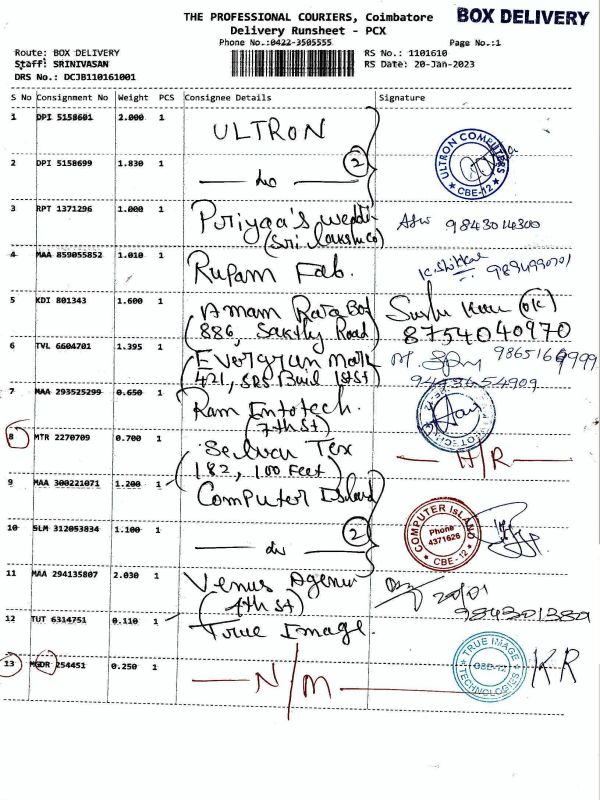 THE PROFESSIONAL COURIERS, Coimbatore
BOX DELIVERY
Delivery Runsheet - PCX
Phone No.:0422-3505555
Page No.:1
Route: BOX DELIVERY
RS No.: 1101610
Staff: SRINIVASAN
RS Date: 20-Jan-2023
DRS No.: DCJB110161001
S No Consignment No Weight PCS Consignee Details Signature
1 DPI 5158601 2.000 1 ULTRON
ULTRON COMPUTERS
CBE-12
2 DPI 5158699 1.830 1 do 2
3 RPT 1371296 1.000 1 Priyaa's 9843014300
4 MAA 859055852 1.010 1 Rupam Fab.
5 KDI 801343 1.600 1 Amam Raja Bat (OK)
(886, Sakthy Road) 8754040970
6 TVL 6604701 1.395 1 Evergrun
421, SRS Buil 1st St)
7 MAA 293525299 0.650 1 Ram Infotech.
(7th St)
8 MTR 2270709 0.700 1 Selvan Tex H/R
(182, 100 Feet)
9 MAA 300221071 1.200 1 Computer Island
COMPUTER ISLAND
Phone
4371626
CBE-12
10 SLM 312053834 1.100 1 do 2
11 MAA 294135807 2.030 1 Venus 20/01
(4th St)
12 TUT 6314751 0.110 1 True Image.
TRUE IMAGE
CBE-12
TECHNOLOGIES
KR
13 MGDR 254451 0.250 1 N/M